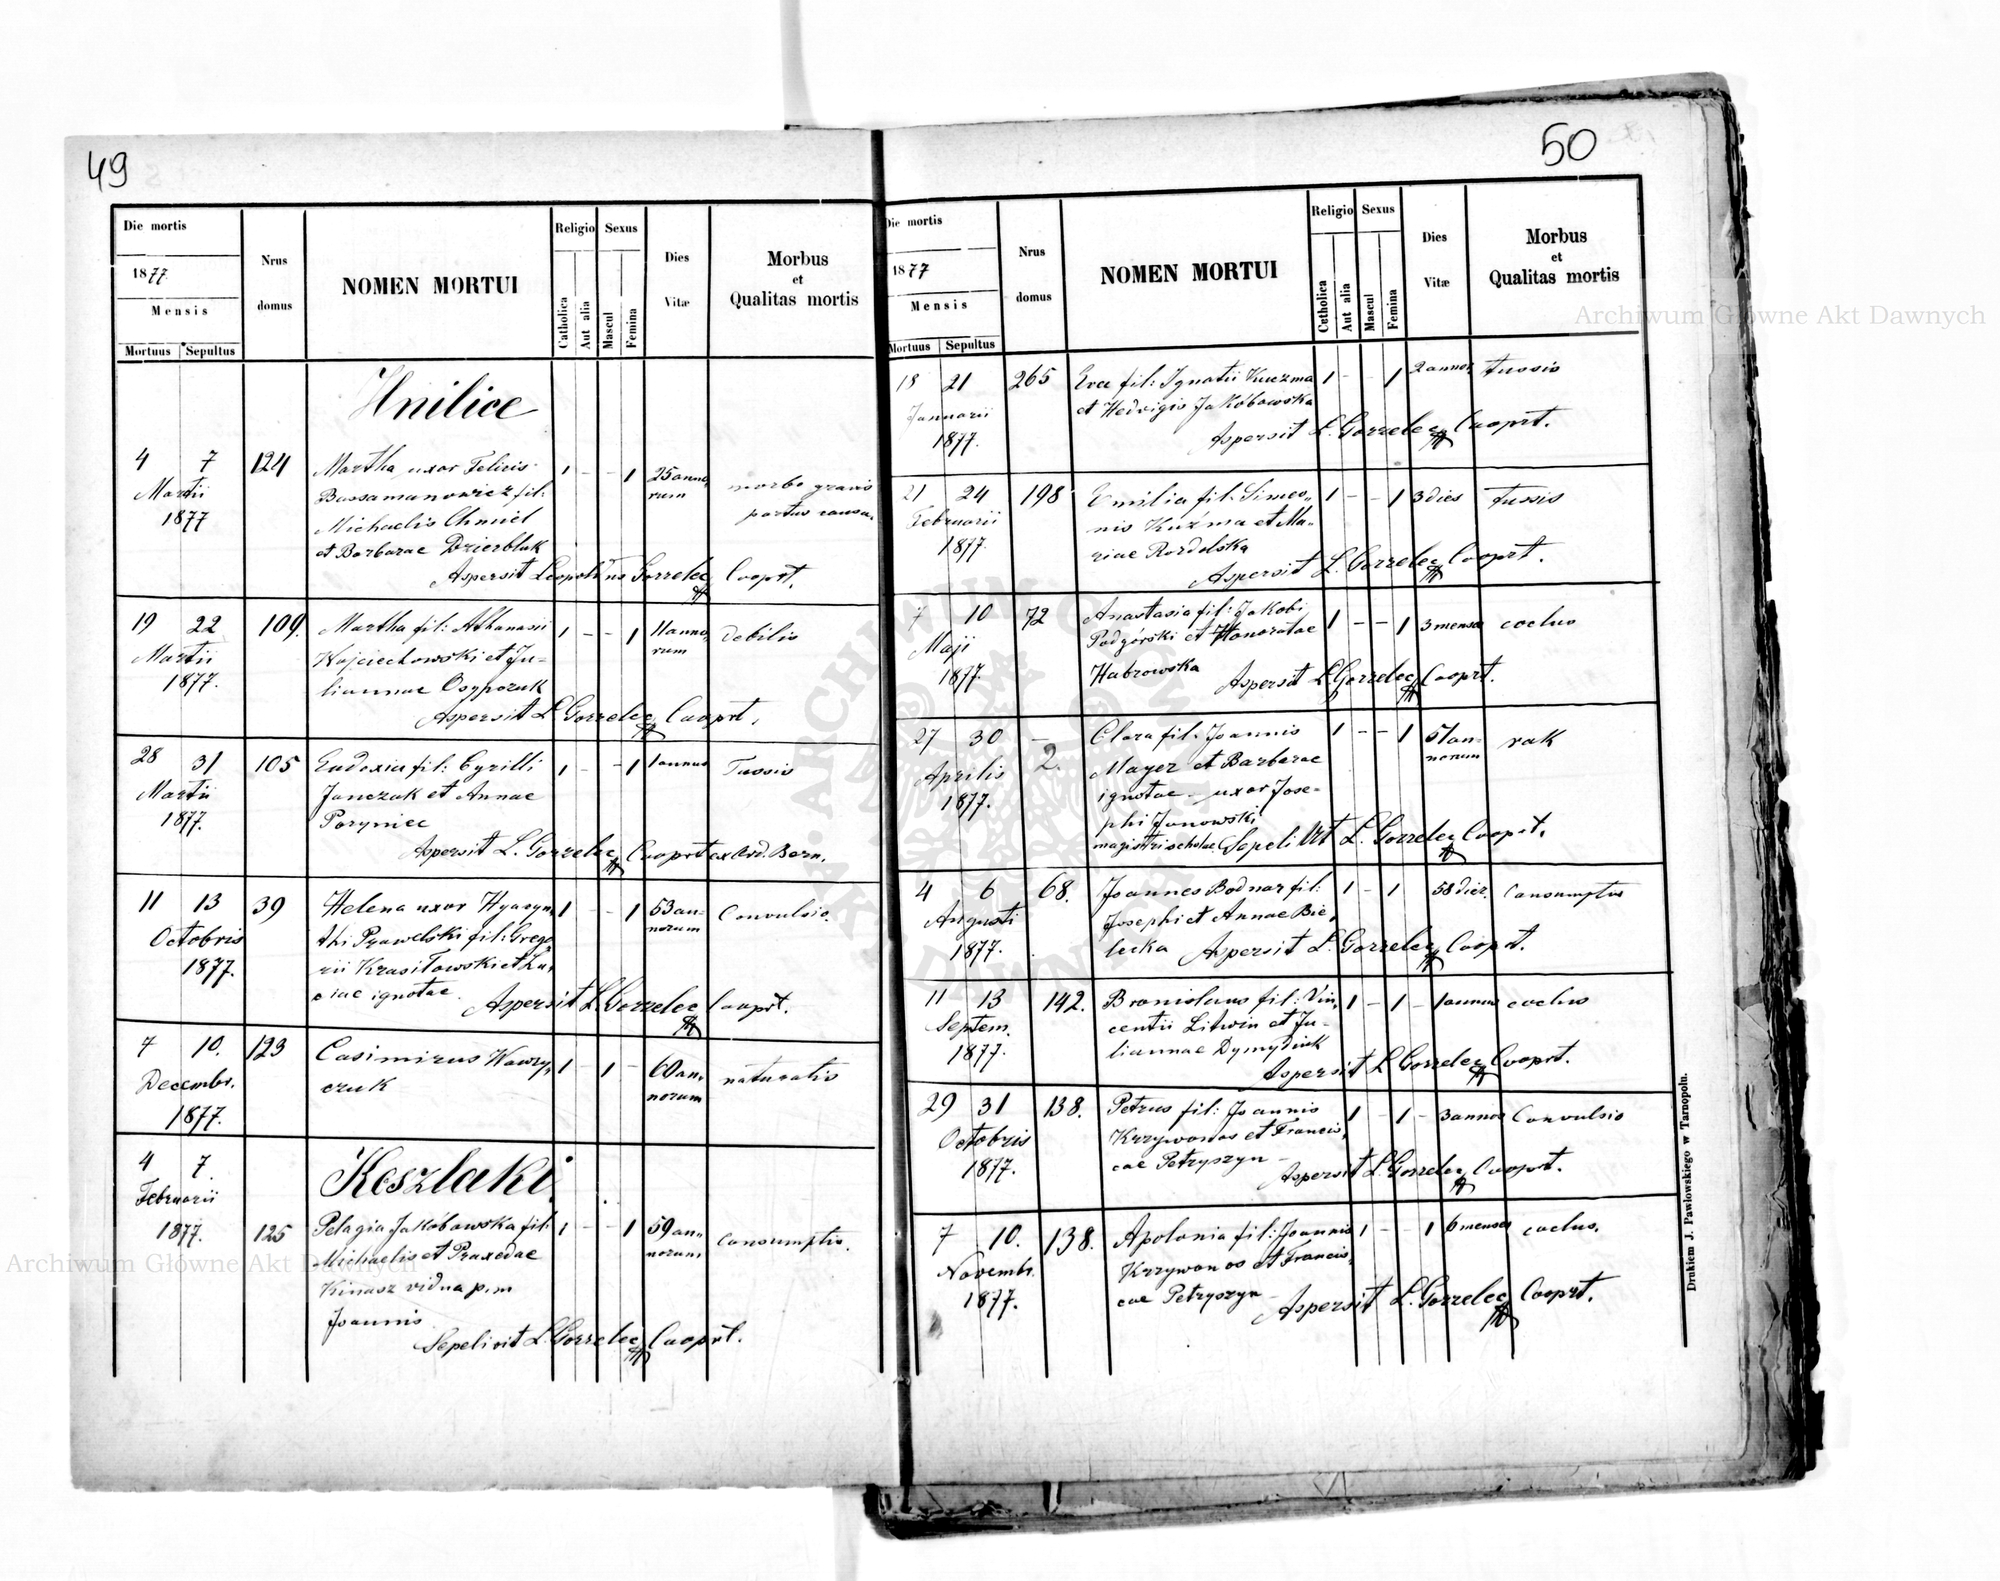 49
Die mortis
1877
Mensis
Mortuus Sepultus
Nrus domus
NOMEN MORTUI
Religio
Catholica
Aut alia
Sexus
Mascul
Femina
Dies Vitæ
Morbus
et
Qualitas mortis
Hnilice
4 7 124 Martha uxor Felicis 1 - - 1 25 anno„
Martii
1877
rum
morbo gravis
partus causa.
fil:
Michaelis Chmiel
et Barbarae
Aspersit Gorzelec Cooprt.
19 22 109. Martha fil: Athanasii 1 - - 1 11 anno„ debilis
Martii Wojciechowski et Ju- rum
1877. liannae Osypczuk
Aspersit L. Gorzelec Cooprt.
28 31 105 Eudoxia fil: Cyrilli 1 - - 1 1 annus Tussis
Martii Janczak et Annae
1877. Poryniec
Aspersit L. Gorzelec Cooprt ex Ord. Bern.
11 13 39 Helena uxor Hyacyn„ 1 - - 1 53 an- Convulsio.
Octobris thi Prawelski fil: Grego„ norum
1877. rii Krasilowski et Lu„
ciae ignotae.
Aspersit L. Gorzelec Cooprt.
7 10. 123 Casimirus Wawry„ 1 - 1 - 60 an„ naturalis
Decembr. czuk norum
1877.
4 7
Februarii
1877.
Koszlaki
125 Pelagia Jakóbowska fil: 1 - - 1 59 an„ consumptio.
Michaelis et Praxedae norum
Kinasz vidua p.m
Joannis
Sepelivit L. Gorzelec Cooprt.
50
Die mortis
1877
Mensis
Mortuus Sepultus
Nrus domus
NOMEN MORTUI
Religio
Catholica
Aut alia
Sexus
Mascul
Femina
Dies Vitæ
Morbus
et
Qualitas mortis
18 21 265 Eva fil: Ignatii Kuczma 1 - - 1 2 annor. tussis
Januarii et Hedvigis Jakóbowska
1877.
Aspersit L. Gorzelec Cooprt.
21 24 198 Emilia fil: Simeo„ 1 - - 1 3 dies tussis
Februarii nis Kuźma et Ma„
1877. riae
Aspersit L. Gorzelec Cooprt.
7 10 72 Anastasia fil: Jakobi 1 - - 1 3 menses coclus
Maji Podgórski et Honoratae
1877. Habrowska
Aspersit L. Gorzelec Cooprt.
27 30 - 2. Clara fil: Joannis 1 - - 1 51 an- rak
Aprilis Mayer et Barbarae norum
1877. ignotae - uxor Jose-
phi Janowski
magistri scholae Sepelivit L. Gorzelec Cooprt.
4 6 68. Joannes Bodnar fil: 1 - 1 58 dier. consumptus
Augusti Josephi et Annae Bie„
1877. lecka Aspersit L. Gorzelec Cooprt.
11 13 142. Bronislaus fil: Vin„ 1 - 1 - 1 annus coclus
Septem. centii Litwin et Ju-
1877. liannae
Aspersit L. Gorzelec Cooprt.
29 31 138. Petrus fil: Joannis 1 - 1 - 3 annos Convulsio
Octobris Krzywonos et Francis„
1877. cae Petryszyn -
Aspersit L. Gorzelec Cooprt.
7 10. 138. Apolonia fil: Joannis 1 - - 1 6 menses coclus.
Novembr. Krzywonos et Francis„
1877. cae Petryszyn -
Aspersit L. Gorzelec Cooprt.
Drukiem J. Pawłowskiego w Tarnopolu.
Archiwum Główne Akt Dawnych
Archiwum Główne Akt Dawnych